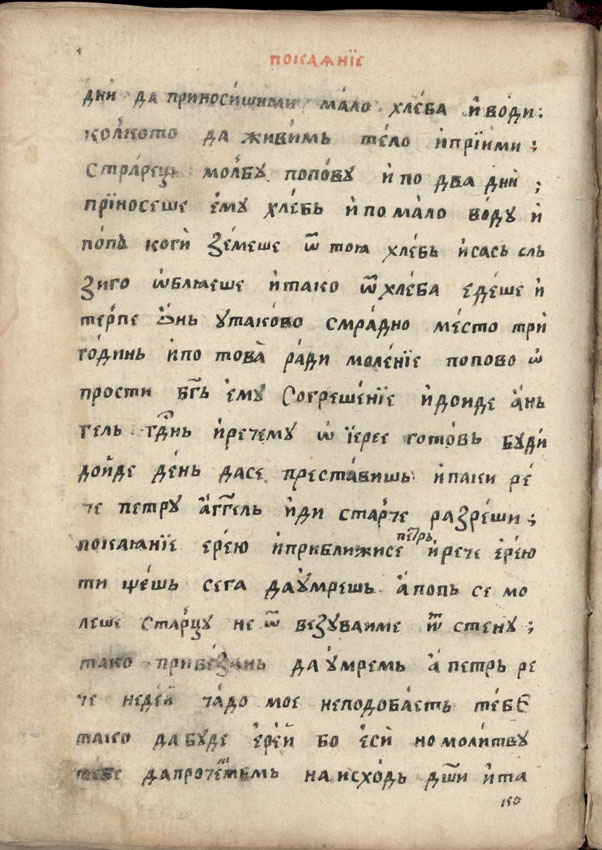 ПОКАѦНЇЕ
дни́ да приноси́шими ма́ло хлѣ́ба и҆ во́ди :
коли́кото да живи́мь те́ло и҆ прїи́ми :
стра́рець моли́бу попо́ву и҆ по два днѝ ;
прїи́носеше е҆му хлѣ́бь и҆ по ма́ло во́ду и҆
по́пь коги̇̀ зе́меше ѿ тоꙗ хлѣ́бь и҆ сась сль
зи го ѡ҆блꙗ́еше и҆ тако ѿ хлѣ́ба еде́ше и҆
те́рпе ѻ҆нь у тако́во смра́дно ме́сто три̇̀
го́динь и҆ по това̀ ра́ди моле́нїе попо́во ѡ҆
прости бг҃ь е҆му согреше́нїе и҆ до́иде а҆нь
гель гд҃нь и҆ рече му ѡ҆ їере́е гото́вь буди̇̀
до́йде де́нь да се преста́вишь и҆ паки ре́
че петру а҆ггель и҆ди ста́рче разре́ши :
покаꙗ́нїе ере́ю и҆ приближи се петрь и҆ рече е҆ре́ю
ти ще́шь сега да у҆мрешь а҆ попь се мо
леше ста́рцу не ѿ везуваиме ѿ стену :
тако приве́зань да у҆мремь а҆ петрь ре
че неде́й ча́до мое неподоба́еть тебе
тако да буде е҆ре́й бо е҆си̇̀ но моли́тву
тебе да прочетемь на исхо́дь дш҃и и҆ та